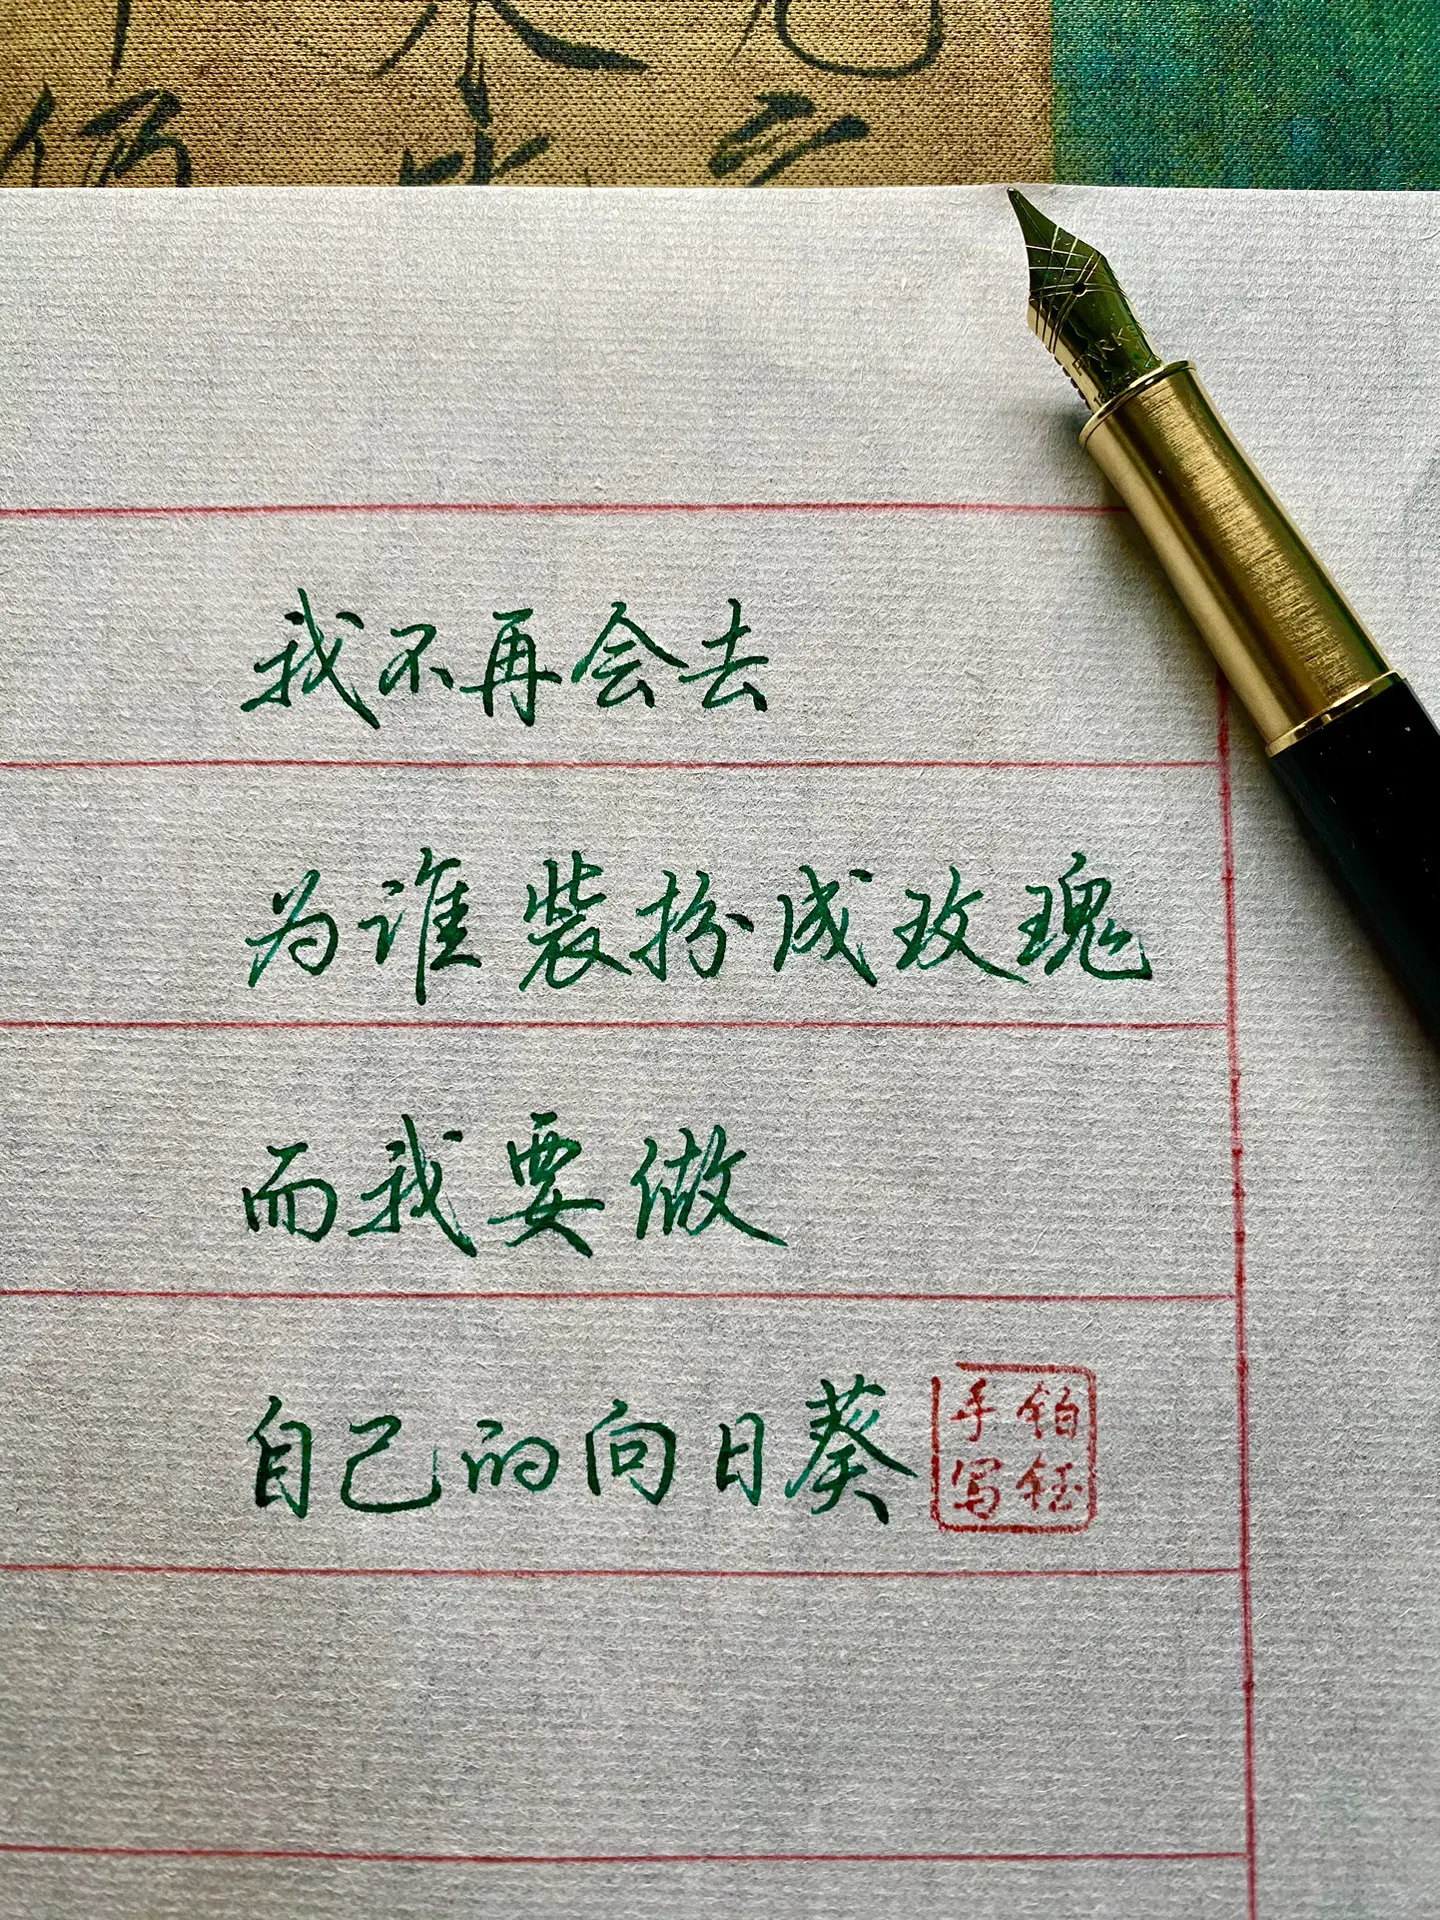 我不再会去
为谁装扮成玫瑰
而我要做
自己的向日葵
铂钰
手写
PARKE